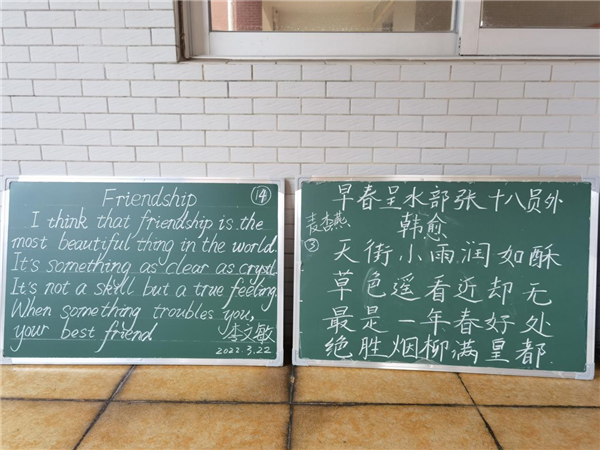 Friendship ⑭
I think that friendship is the
most beautiful thing in the world.
It's something as clear as crystl.
It's not a skill but a true feeling.
When something troubles you,
your best friend 李文敏
2022.3.22
早春呈水部张十八员外
韩愈
麦杏燕
③
天街小雨润如酥
草色遥看近却无
最是一年春好处
绝胜烟柳满皇都